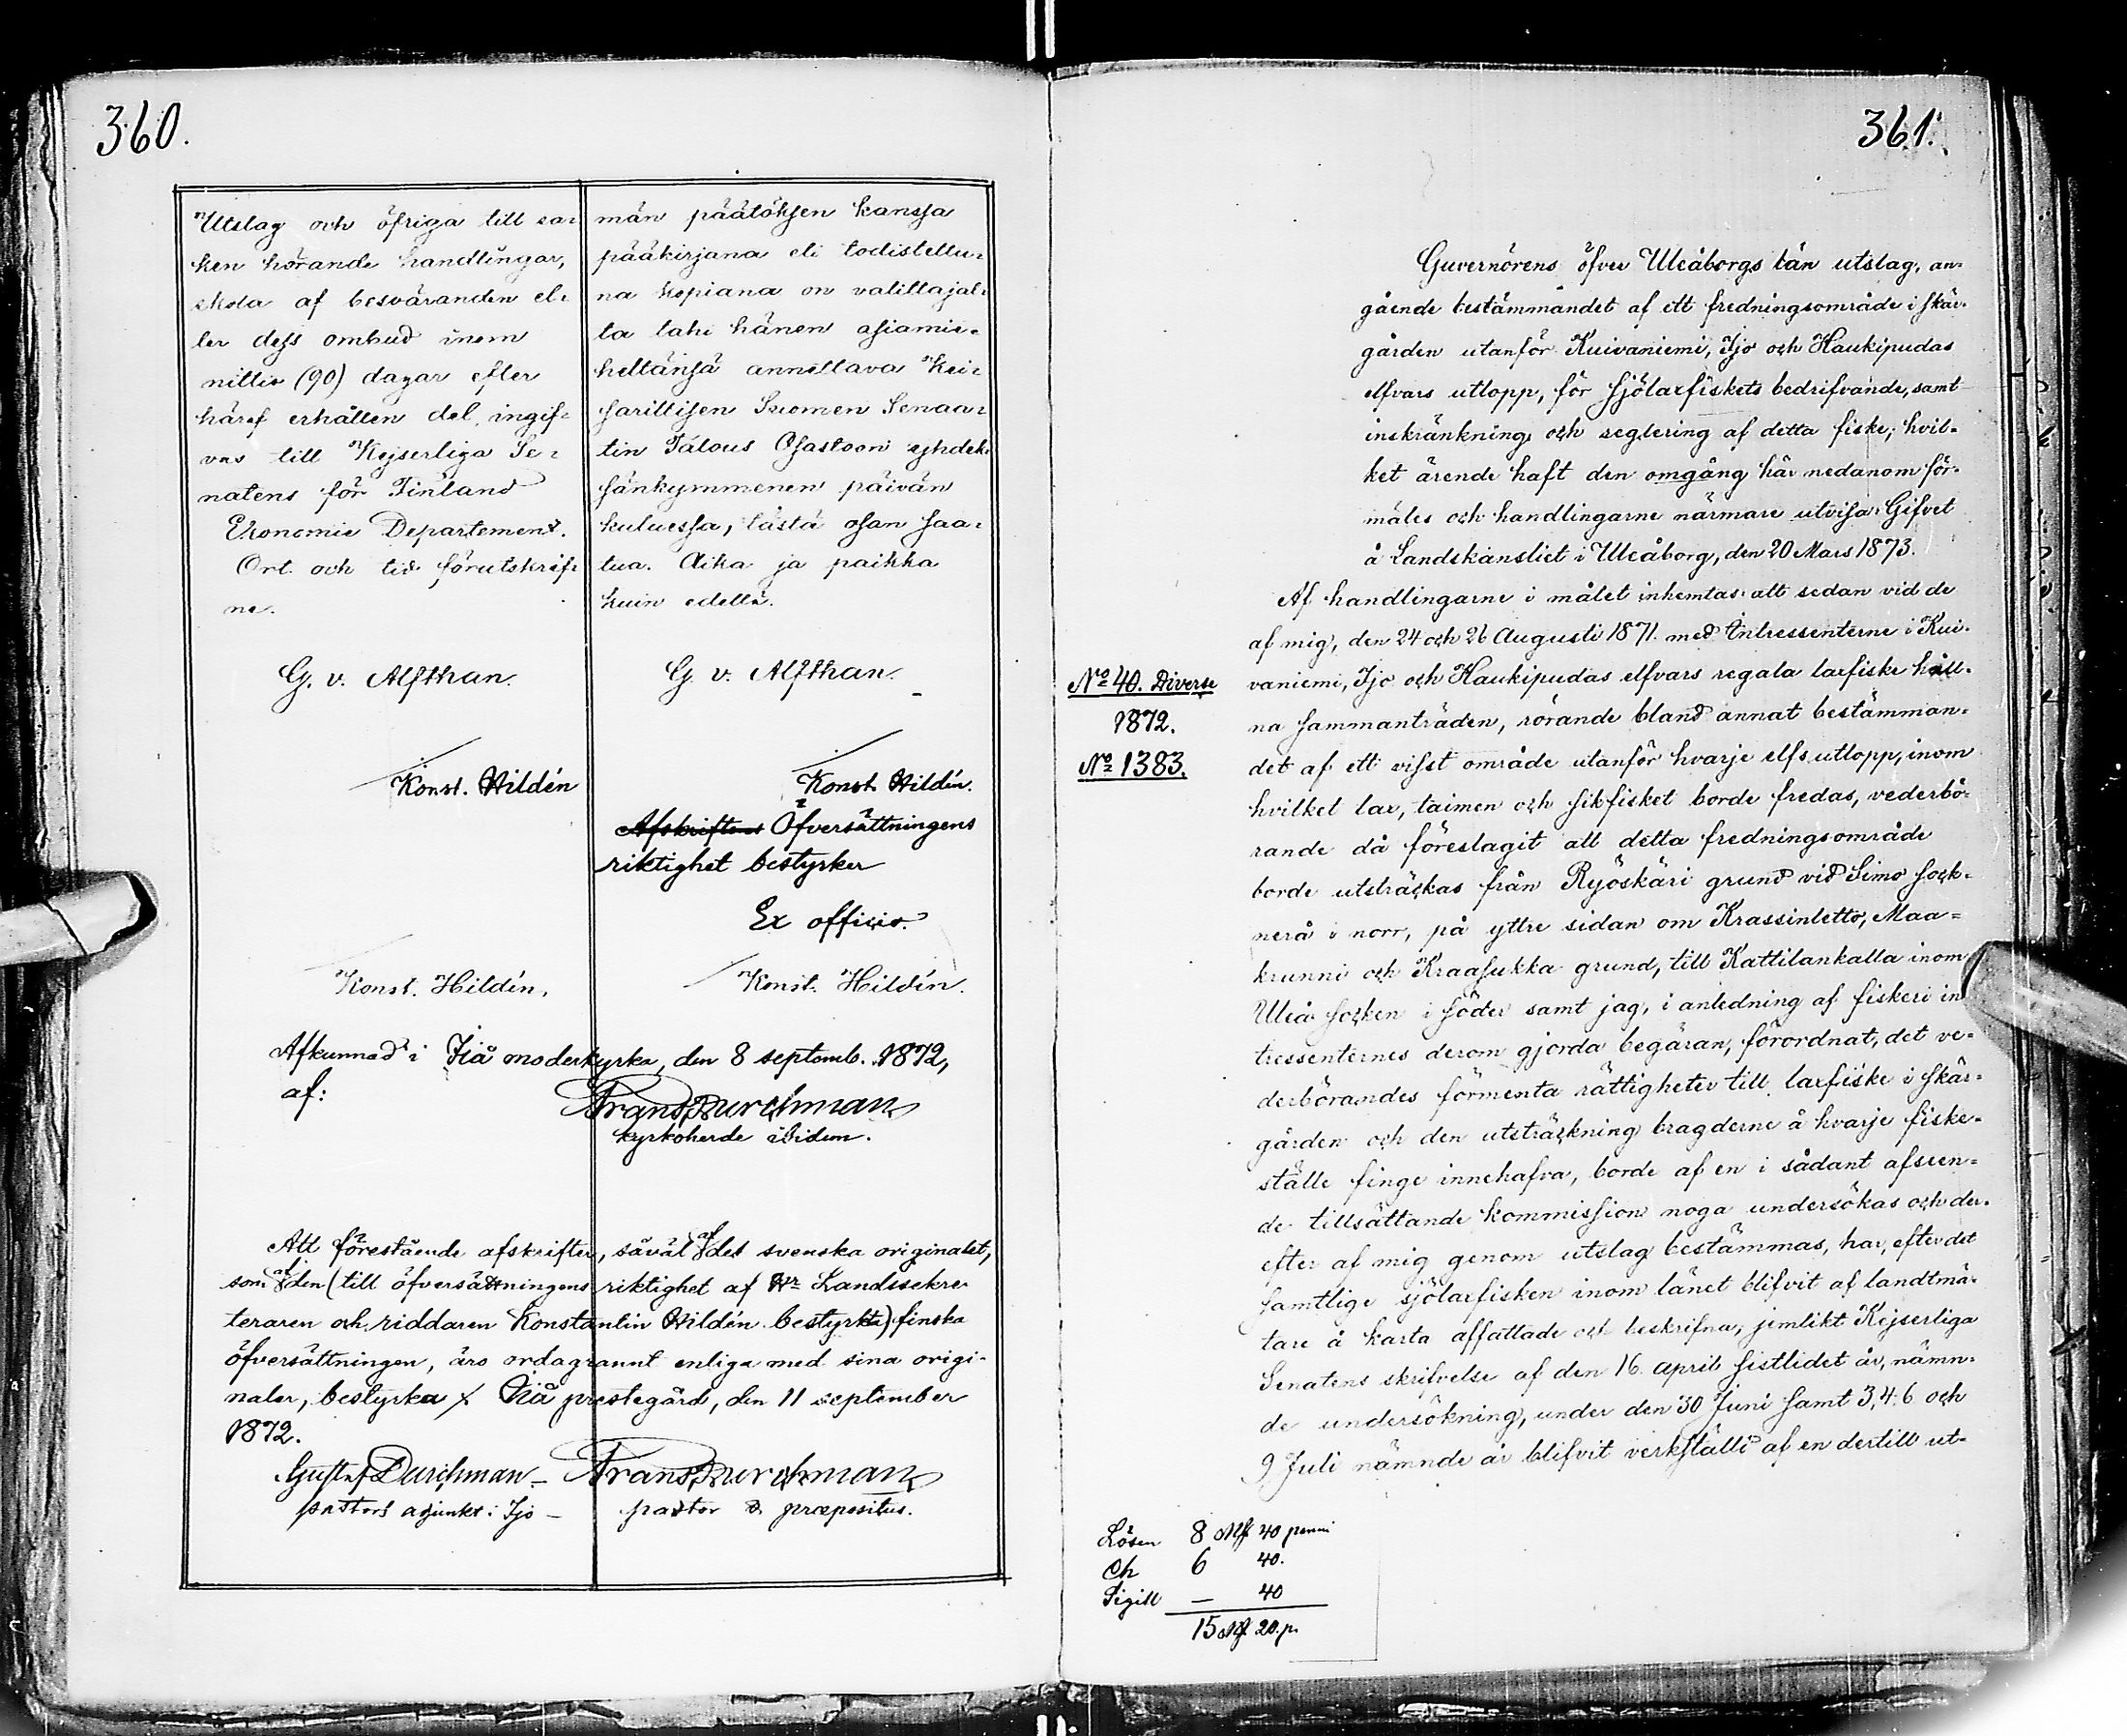 360.
Utslag och öfriga till sa-
ken hörande handlingar,
skola af besväranden el-
ler dess ombud inom
nittio (90) dagar efter
häraf erhållen del, ingif-
vas till Kejserliga Se-
natens för Finland
Ekonomie Departement.
Ort och tid förutskrif-
ne.
G. v. Alfthan.
Konst. Hildén
Konst. Hildén.
män päätöksen kanssa
pääkirjana eli todistellu-
na kopiana on valittajal-
ta tahi hänen asiamie-
heltänsä annettava Kei-
sarillisen Suomen Senaa-
tin Talous Osastoon yhdek-
sänkymmenen päivän
kuluessa, tästä osan saa-
tua. Aika ja paikka
kuin edellä.
G. v. Alfthan.
Konst. Hildén.
Afskriftens Öfversättningens
riktighet bestyrker
Ex officio.
Konst. Hildén.
Afkunnad i Iiå moderkyrka, den 8 septemb. 1872,
af:
Frans Durchman
kyrkoherde ibidem.
Att förestående afskrifter, såväl af det svenska originalet,
som af den (till öfversättningens riktighet af Hr Landssekre-
teraren och riddaren Konstantin Hildén bestyrkte) finska
öfversättningen, äro ordagrannt enliga med sina origi-
naler, bestyrka Iiå prestegård, den 11 september
1872.
Gustaf Durchman Frans Durchman
pastors adjunkt i Ijo pastor & præpositus.
361.
Guvernörens öfver Uleåborgs län utslag, an-
gående bestämmandet af ett fredningsområde i skär-
gården utanför Kuivaniemi, Ijo och Haukipudas
elfvars utlopp, för sjölaxfiskets bedrifvande, samt
inskränkning och reglering af detta fiske; hvil-
ket ärende haft den omgång här nedanom för-
mäles och handlingarne närmare utvisa. Gifvet
å Landskansliet i Uleåborg, den 20 Mars 1873.
Af handlingarne i målet inhemtas: att sedan vid de
af mig, den 24 och 26 Augusti 1871. med Intressenterne i Kui-
No 40. Diverse
1872.
No 1383.
vaniemi, Ijo och Haukipudas elfvars regala laxfiske håll-
na sammanträden, rörande bland annat bestämman-
det af ett visst område utanför hvarje elfs utlopp, inom
hvilket lax, taimen och sikfisket borde fredas, vederbö-
rande då föreslagit att detta fredningsområde
borde utsträckas från Ryöskäri grund vid Simo sock-
nerå i norr, på yttre sidan om Krassinletto, Maa-
krunni och Kraasukka grund, till Kattilankalla inom
Uleå socken i söder samt jag, i anledning af fiskeri in-
tressenternes derom gjorda begäran, förordnat, det ve-
derbörandes förmenta rättigheter till laxfiske i skär-
gården och den utsträckning bragderne å hvarje fiske-
ställe finge innehafva, borde af en i sådant afseen-
de tillsättande kommission noga undersökas och der-
efter af mig genom utslag bestämmas, har, efter det
samtlige sjölaxfisken inom länet blifvit af landtmä-
tare å karta affattade och beskrifna, jemlikt Kejserliga
Senatens skrifvelse af den 16 april sistlidet år, nämn-
de undersökning, under den 30 Juni samt 3, 4, 6 och
9 Juli nämnde år blifvit verkställd af en dertill ut-
Lösen 8 Mf 40 penni
Ch 6 40.
Sigill — 40
15 Mf. 20. p.